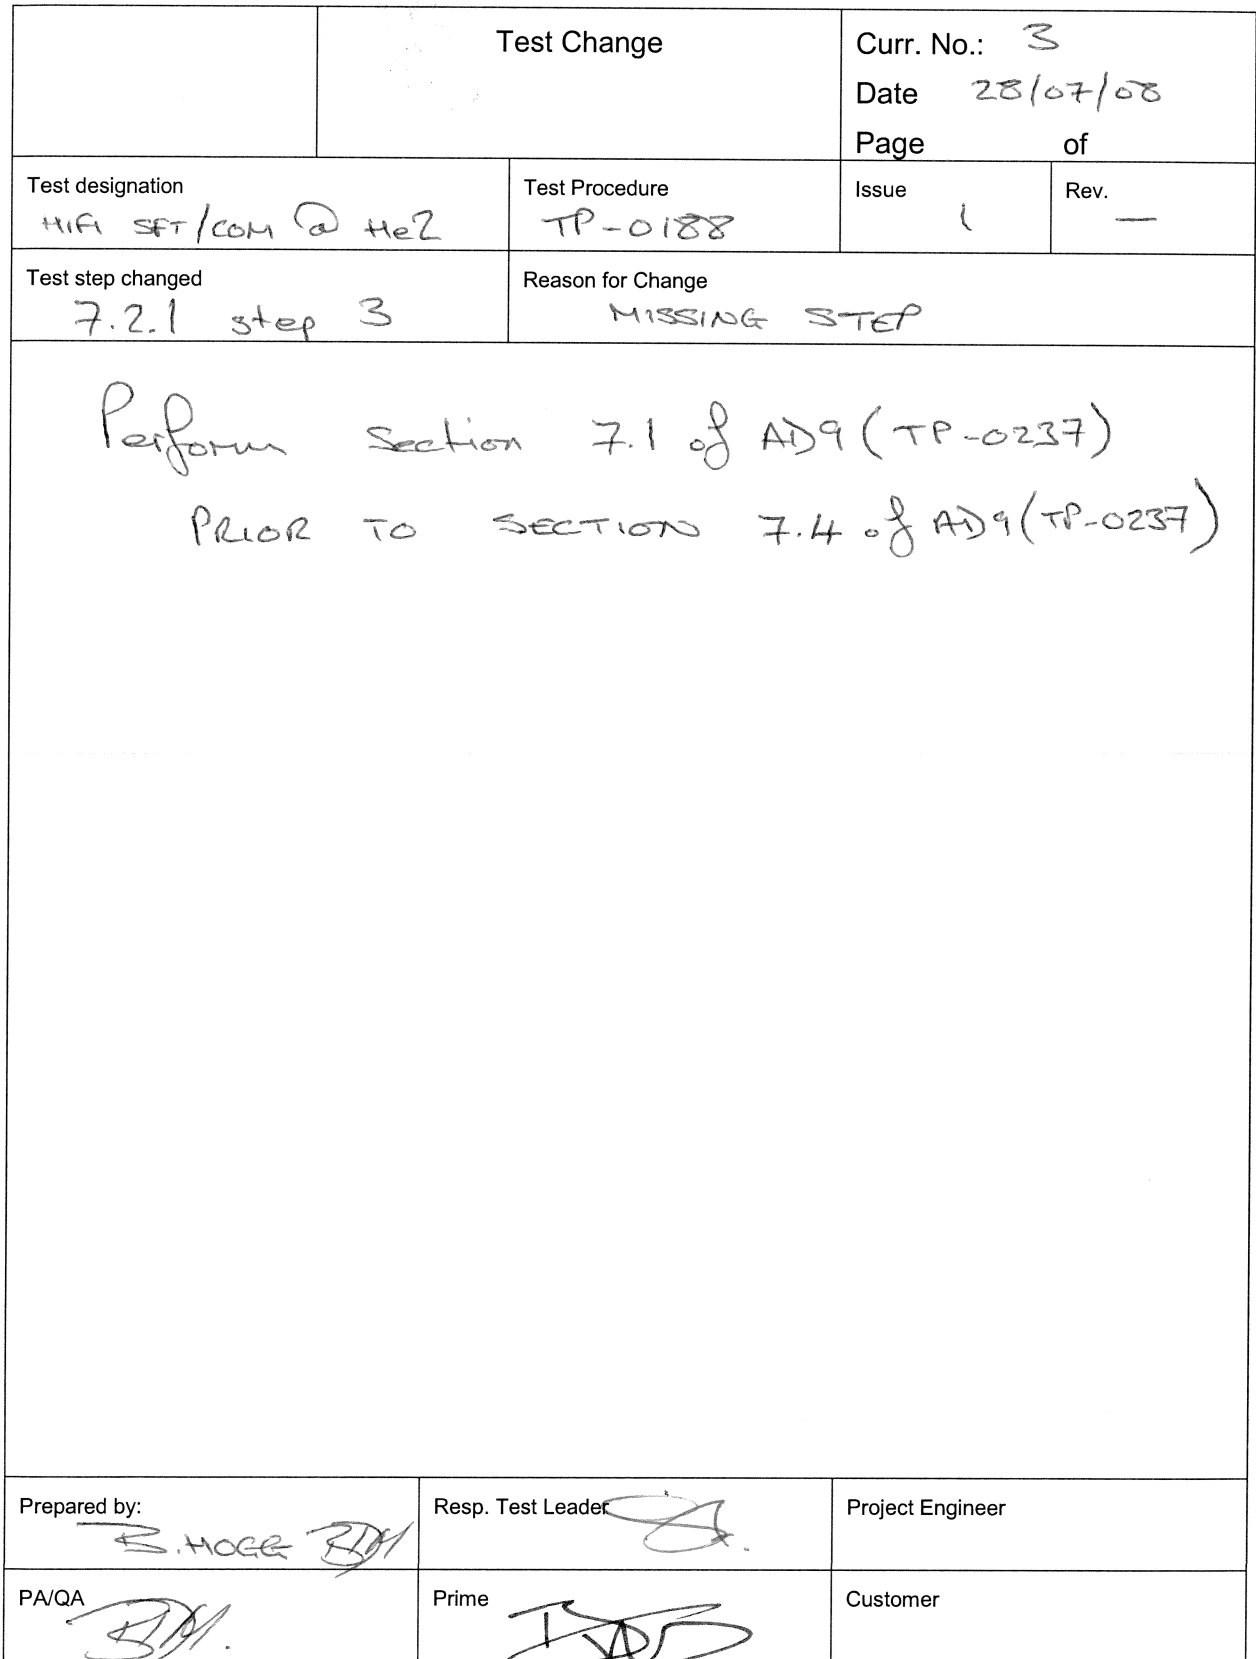 Test Change
Curr. No.: 3
Date 28/07/08
Page of
Test designation
HIFI SFT/COM @ He2
Test Procedure
TP-0188
Issue
1
Rev.
—
Test step changed
7.2.1 step 3
Reason for Change
MISSING STEP
Perform Section 7.1 of AD9 (TP-0237)
PRIOR TO SECTION 7.4 of AD9 (TP-0237)
Prepared by:
B. HOGG
Resp. Test Leader
Project Engineer
PA/QA
Prime
Customer